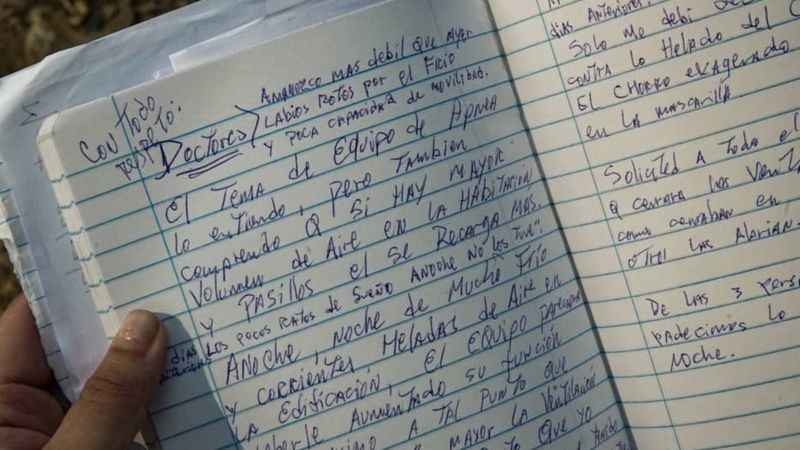 Con Todo
respeto:
Doctores
Amanezco mas debil que Ayer
Labios Rotos por el Frio
y poca capacidad de movilidad.
El Tema de Equipo de Apnea
lo entiendo, pero Tambien
comprendo Q Si HAY MAYOR
Volumen de Aire en LA HABITACION
y PASILLOS el se Recarga Más.
dias anteriores
Los pocos Ratos de Sueño Anoche No los Tuve".
Anoche, Noche de Mucho Frío
y corrientes Heladas de Aire en
LA Edificación, El Equipo
Aumentado su función
A tal punto que
mayor la Ventilación
que yo
dias Anteriores.
Solo me debi
contra lo Helado del
El chorro exagerado
en la mascarilla
Solicited A todo el
Q cerrara las Venta
como cerraban en
otrel las Abrian
De las 3 perso
padecimos lo
Noche.